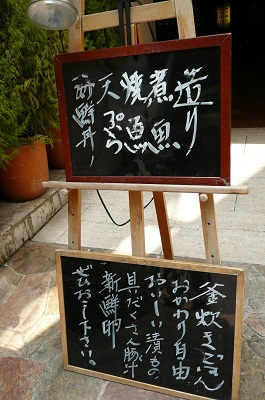 造り
煮魚
焼魚
天ぷら
海鮮丼!
釜炊きごはん
おかわり自由
おいしい漬もの
具だくさん豚汁
新鮮卵
ぜひおこし下さい!